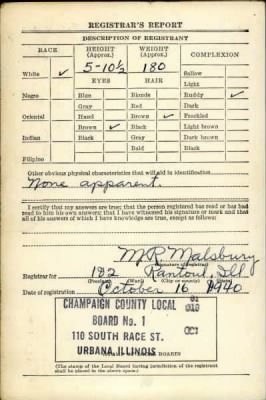 REGISTRAR'S REPORT
DESCRIPTION OF REGISTRANT
RACE HEIGHT (Approx.) WEIGHT (Approx.) COMPLEXION
White ✓ 5-10½ 180 Sallow
EYES HAIR Light
Negro Blue Blonde Ruddy ✓
Gray Red Dark
Oriental Hazel Brown ✓ Freckled
Brown ✓ Black Light brown
Indian Black Gray Dark brown
Bald Black
Filipino
Other obvious physical characteristics that will aid in identification
None apparent.
I certify that my answers are true; that the person registered has read or has
had read to him his own answers; that I have witnessed his signature or mark and that
all of his answers of which I have knowledge are true, except as follows:
M R Malsbury
(Signature of registrar)
Registrar for 182 Rantoul, Ill.
(Precinct) (Ward) (City or county)
Date of registration October 16 1940
CHAMPAIGN COUNTY LOCAL
BOARD No. 1
110 SOUTH RACE ST.
URBANA, ILLINOIS
(The stamp of the Local Board having jurisdiction of the registrant
shall be placed in the above space.)